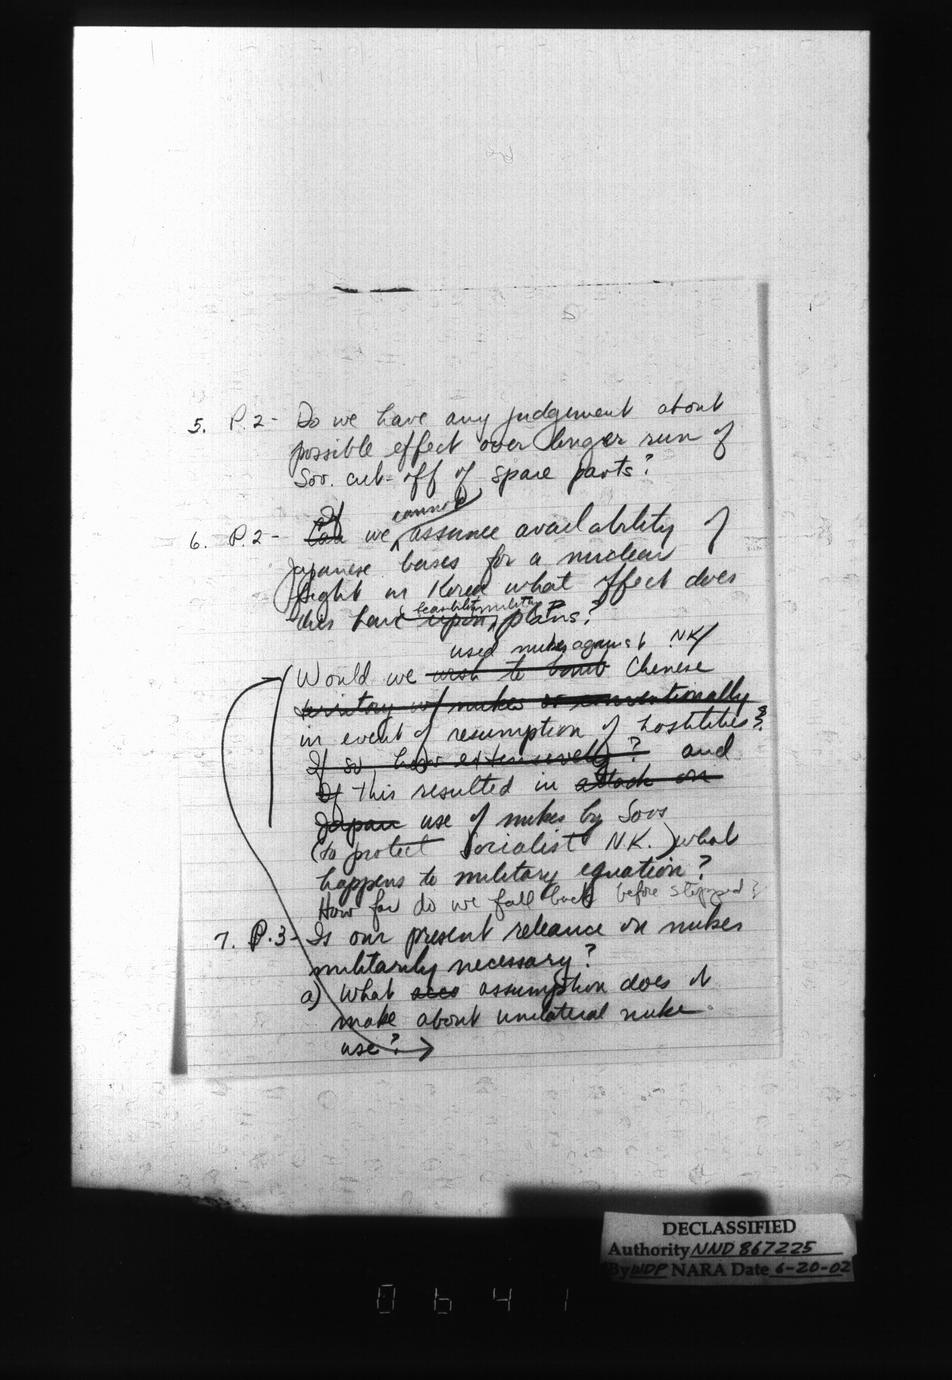 5. P.2- Do we have any judgement about
possible effect over longer run of
Sov. cut-off of spare parts?
If cannot
6. P.2- Can we assume availability of
Japanese bases for a nuclear
fight in Korea what effect does
this have upon plans?
used nukes against NK/
Would we wish to bomb Chinese
territory w/ nukes or conventionally
in event of resumption of hostilities?
If so how extensively? and
If this resulted in attack on
Japan use of nukes by Sovs
(to protect Socialist N.K.) what
happens to military equation?
How far do we fall back before stopped?
7. P.3- Is our present reliance on nukes
militarily necessary?
a) What assumption does it
make about unilateral nuke
use?
DECLASSIFIED
Authority NND 867225
By WDP NARA Date 6-20-02
0641